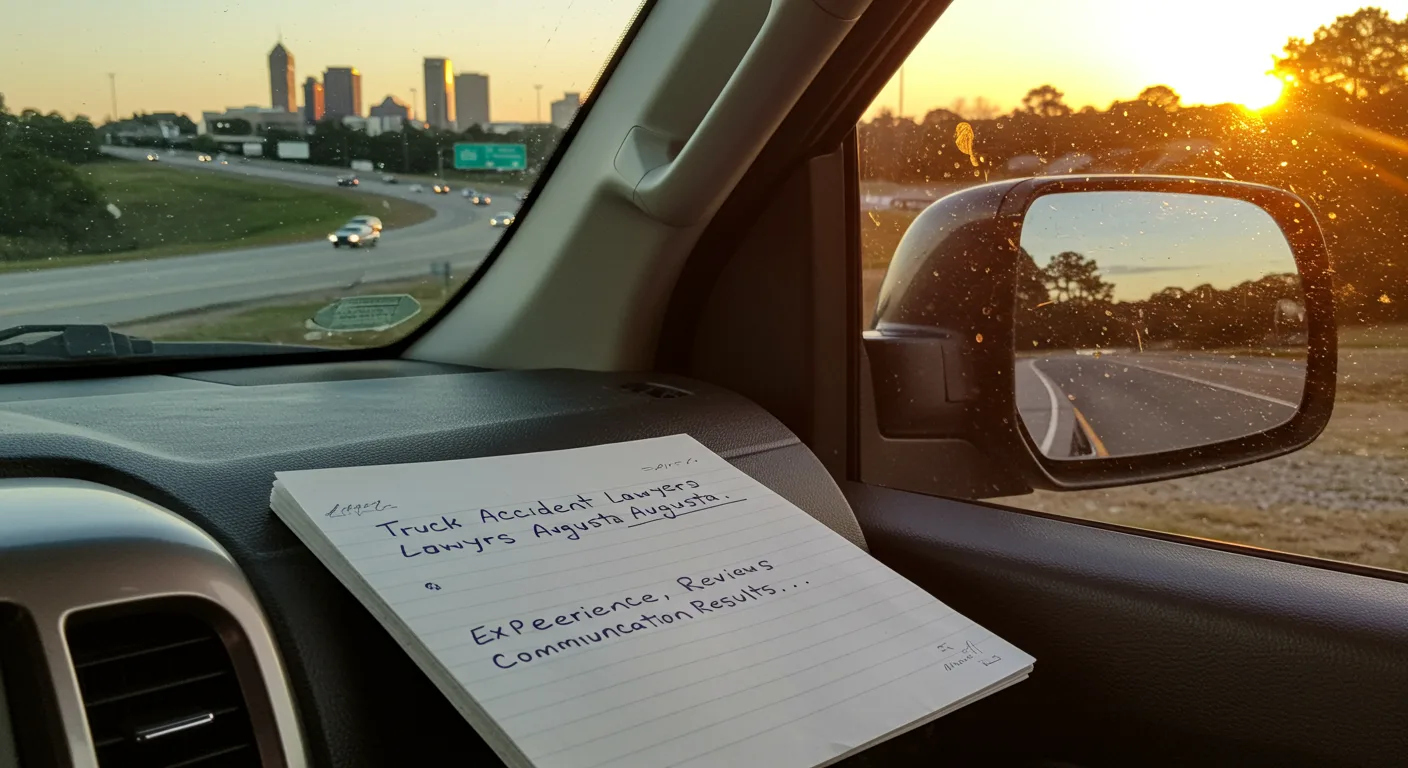 Truck Accident Lawyers
Lawyrs Avgusta Augusta.
ExPeerience, Reviews
CommiuncationResults...